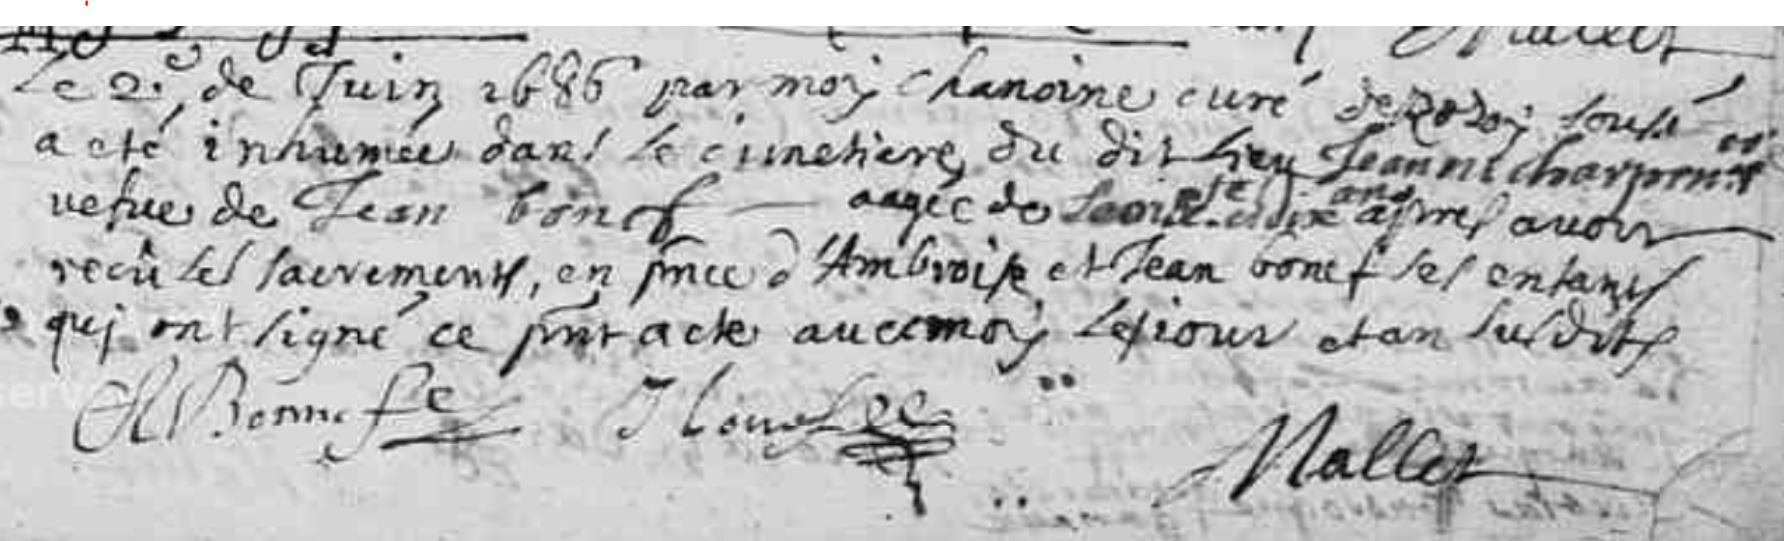 Mallet
Le 2.e de Juin 1686 par moy chanoine curé de Rozoy sousé
a eté inhumée dans le cimetiere du dit lieu Jeanne charpent
vefue de Jean bonef aagée de ans apres avoir
recû les sacrements, en pnce d'Ambroise et Jean bonef ses enfants
quj ont signé ce pnt acte auec moy les jour et an susdits
A Bonnefe J bonefee
Mallet